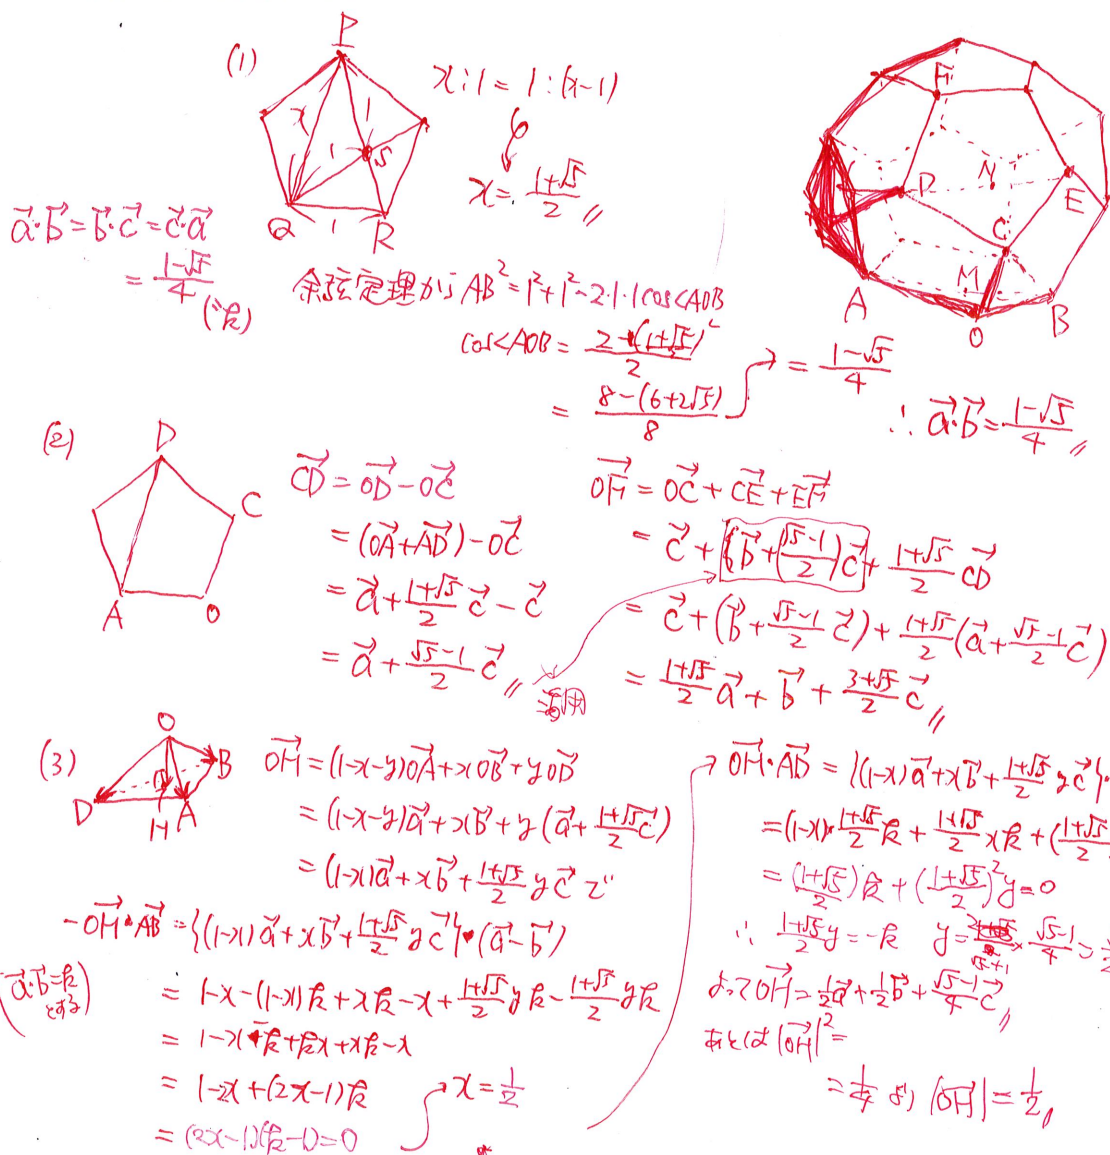 (1)
P
x
1
1
S
Q
1
R
x:1=1:(x-1)
x=\frac{1+√5}{2}〃
\vec{a}・\vec{b}=\vec{b}・\vec{c}=\vec{c}・\vec{a}
=\frac{1-√5}{4}
H
D
N
E
C
M
A
O
B
余弦定理から AB²=1²+1²-2・1・1cos<AOB
cos<AOB=\frac{2-(\frac{1+√5}{2})²}{2}
=\frac{8-(6+2√5)}{8}
=\frac{1-√5}{4}
∴\vec{a}・\vec{b}=\frac{1-√5}{4}〃
(2)
D
C
A
O
\vec{CD}=\vec{OD}-\vec{OC}
=(\vec{OA}+\vec{AD})-\vec{OC}
=\vec{a}+\frac{1+√5}{2}\vec{c}-\vec{c}
=\vec{a}+\frac{√5-1}{2}\vec{c}〃
活用
\vec{OH}=\vec{OC}+\vec{CE}+\vec{EH}
=\vec{c}+{\vec{b}+(\frac{√5-1}{2})\vec{c}}+\frac{1+√5}{2}\vec{CD}
=\vec{c}+(\vec{b}+\frac{√5-1}{2}\vec{c})+\frac{1+√5}{2}(\vec{a}+\frac{√5-1}{2}\vec{c})
=\frac{1+√5}{2}\vec{a}+\vec{b}+\frac{3+√5}{2}\vec{c}〃
(3)
O
B
D
H
A
\vec{OH}=(1-x-y)\vec{OA}+x\vec{OB}+y\vec{OD}
=(1-x-y)\vec{a}+x\vec{b}+y(\vec{a}+\frac{1+√5}{2}\vec{c})
=(1-x)\vec{a}+x\vec{b}+\frac{1+√5}{2}y\vec{c} で
-\vec{OH}・\vec{AB}={(1-x)\vec{a}+x\vec{b}+\frac{1+√5}{2}y\vec{c}}・(\vec{a}-\vec{b})
(\vec{a}・\vec{b}=k とする)
=1-x-(1-x)k+xk-x+\frac{1+√5}{2}yk-\frac{1+√5}{2}yk
=1-x-k+kx+xk-x
=1-2x+(2x-1)k
=(2x-1)(k-1)=0
x=\frac{1}{2}
\vec{OH}・\vec{AD}={(1-x)\vec{a}+x\vec{b}+\frac{1+√5}{2}y\vec{c}}・
=(1-x)・\frac{1+√5}{2}k+\frac{1+√5}{2}xk+(\frac{1+√5}{2}
=(\frac{1+√5}{2})k+(\frac{1+√5}{2})²y=0
∴\frac{1+√5}{2}y=-k
よって\vec{OH}=\frac{1}{2}\vec{a}+\frac{1}{2}\vec{b}+\frac{√5-1}{4}\vec{c}〃
あとは|\vec{OH}|²=
=\frac{1}{4} より |\vec{OH}|=\frac{1}{2}〃